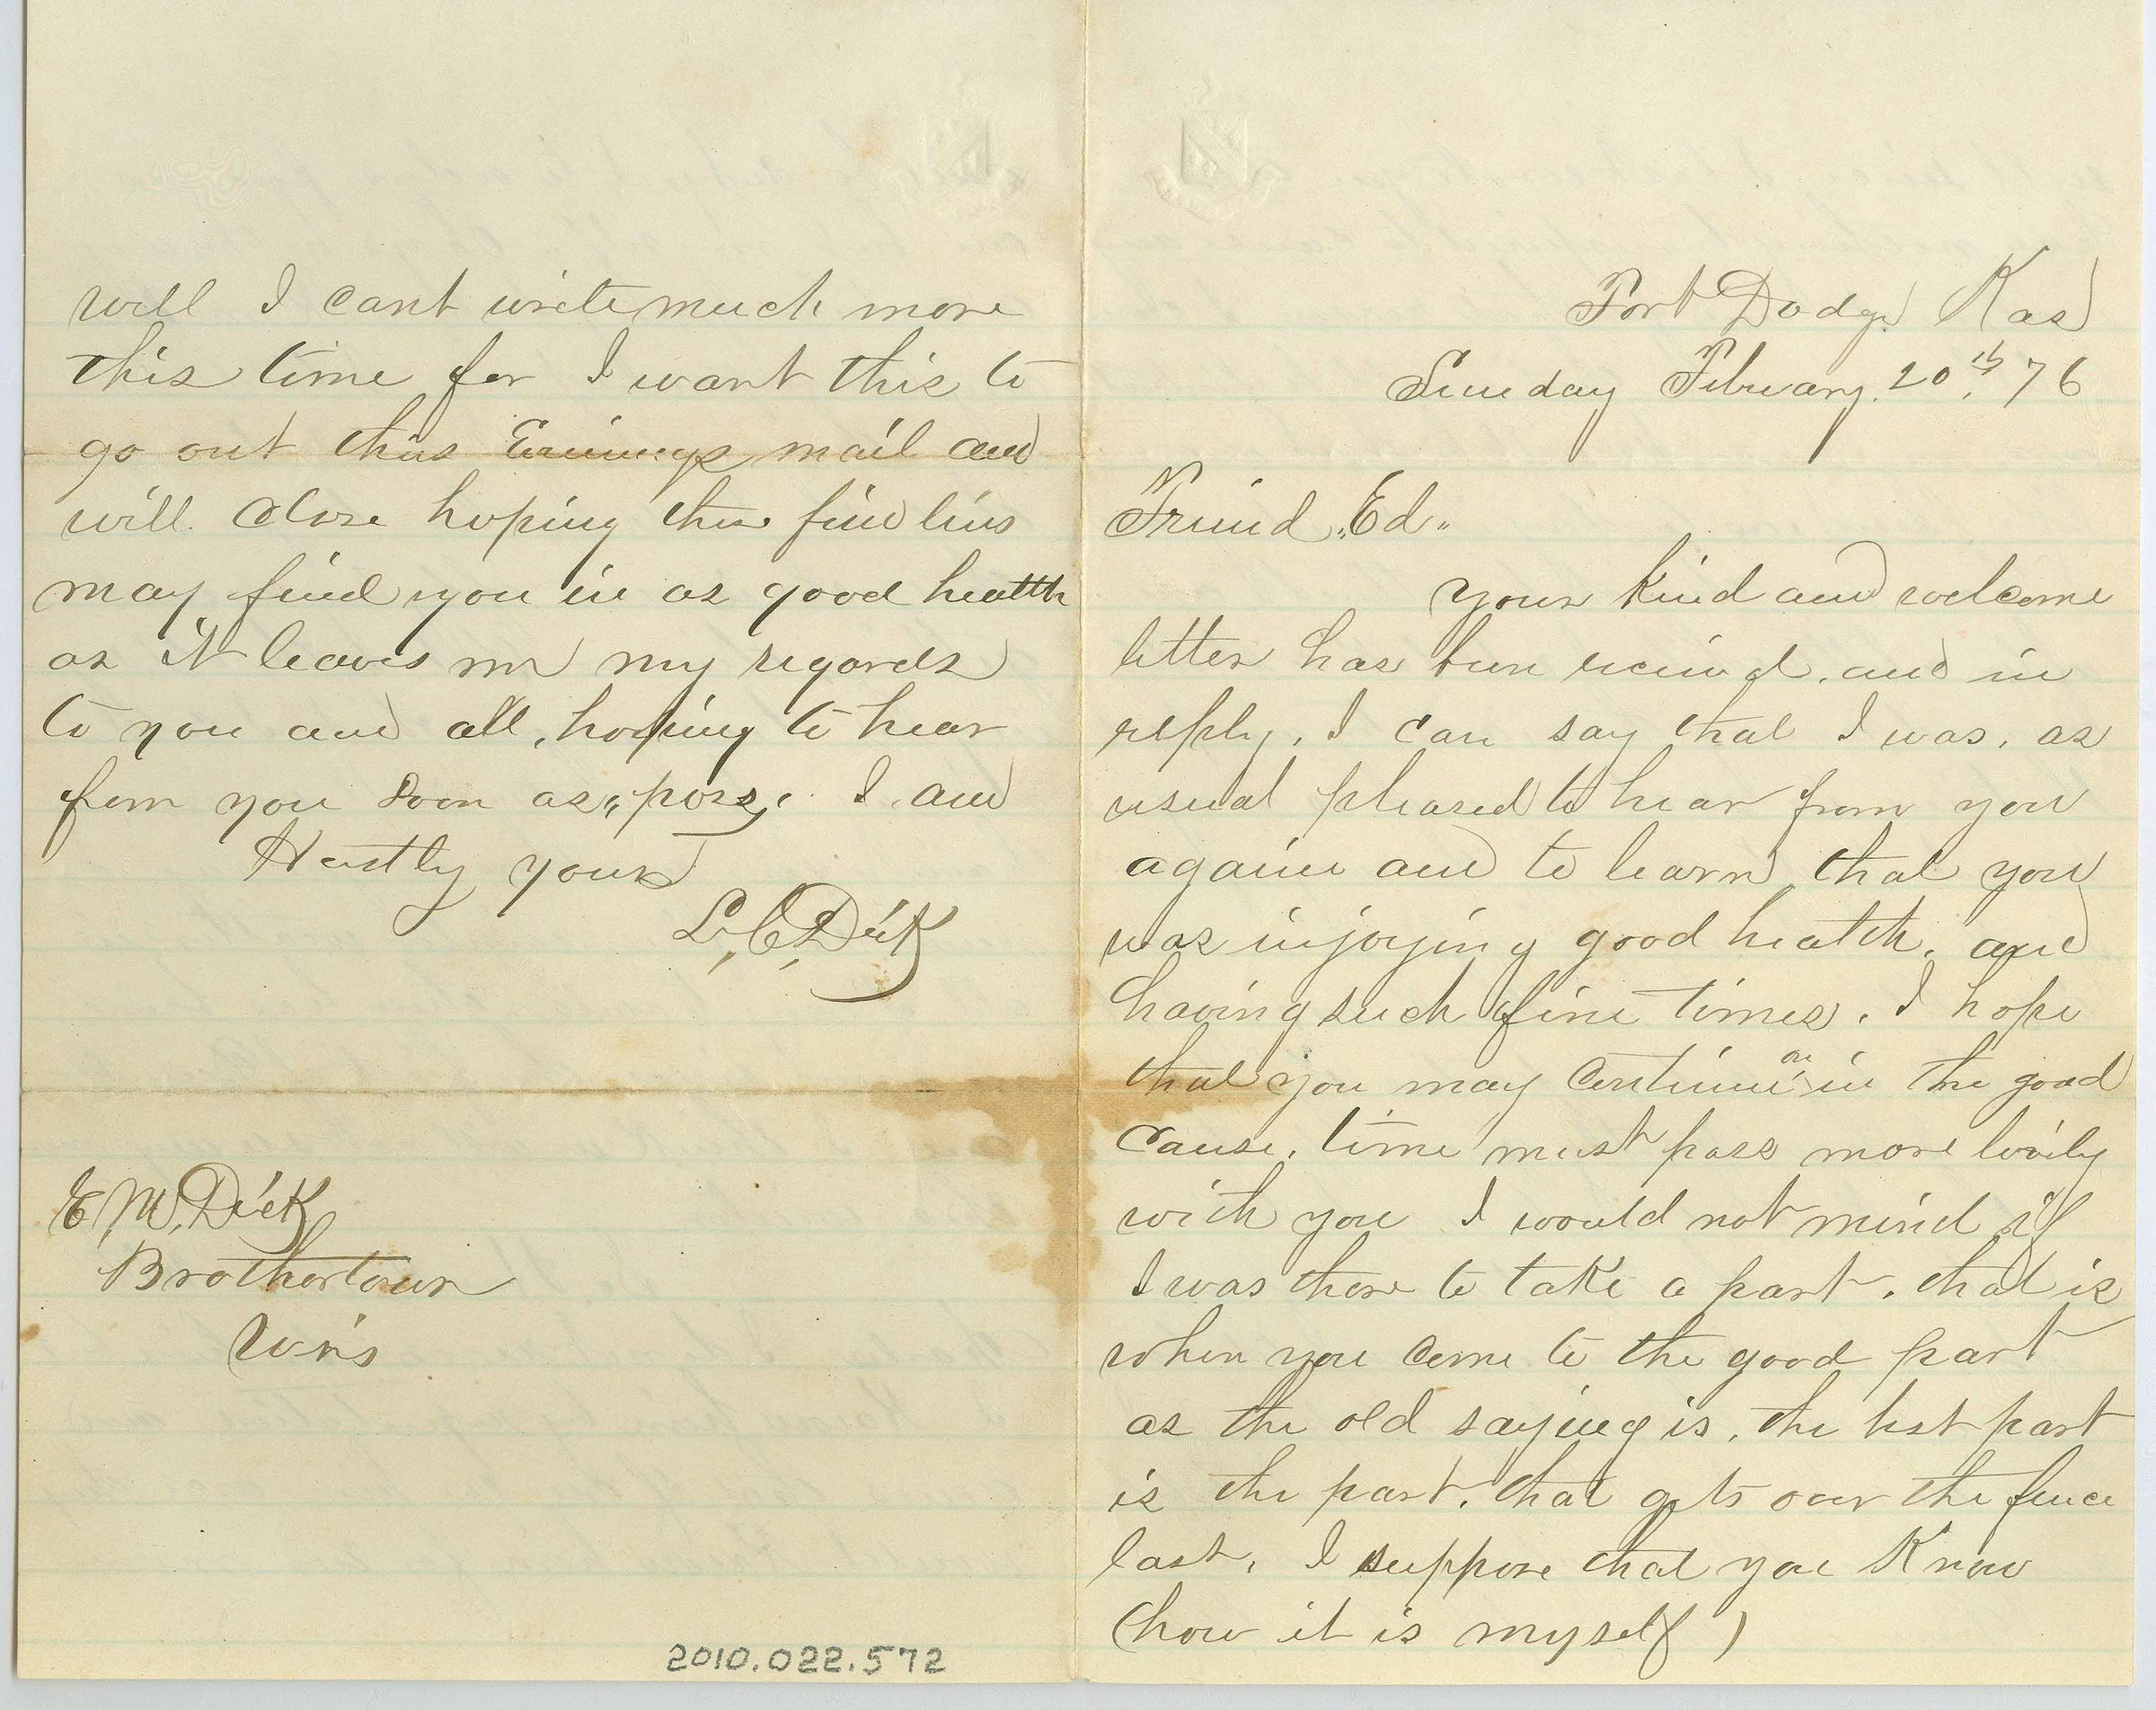 Fort Dodge Kas
Sunday February. 20th, 76
Friend "Ed"
your kind and welcome
letter has been received. and in
reply, I can say that I was, as
usual pleased to hear from you
again and to learn that you
was injoying good health. and
having such fine times. I hope
that you may continue on in the good
cause. time must pass more lively
with you I would not mind if
I was there to take a part. that is
when you come to the good part
as the old saying is. the best part
is the part. that gets over the fence
last. I suppose that you Know
(how it is myself)
well I cant write much more
this time for I want this to
go out this Evenings mail and
will close hoping these few lines
may find you in as good health
as it leaves me my regards
to you and all, hoping to hear
from you soon as "poss, I am
Hastly yours
L, C, Dick
E M. Dick
Brothertown
Wis
2010.022.572